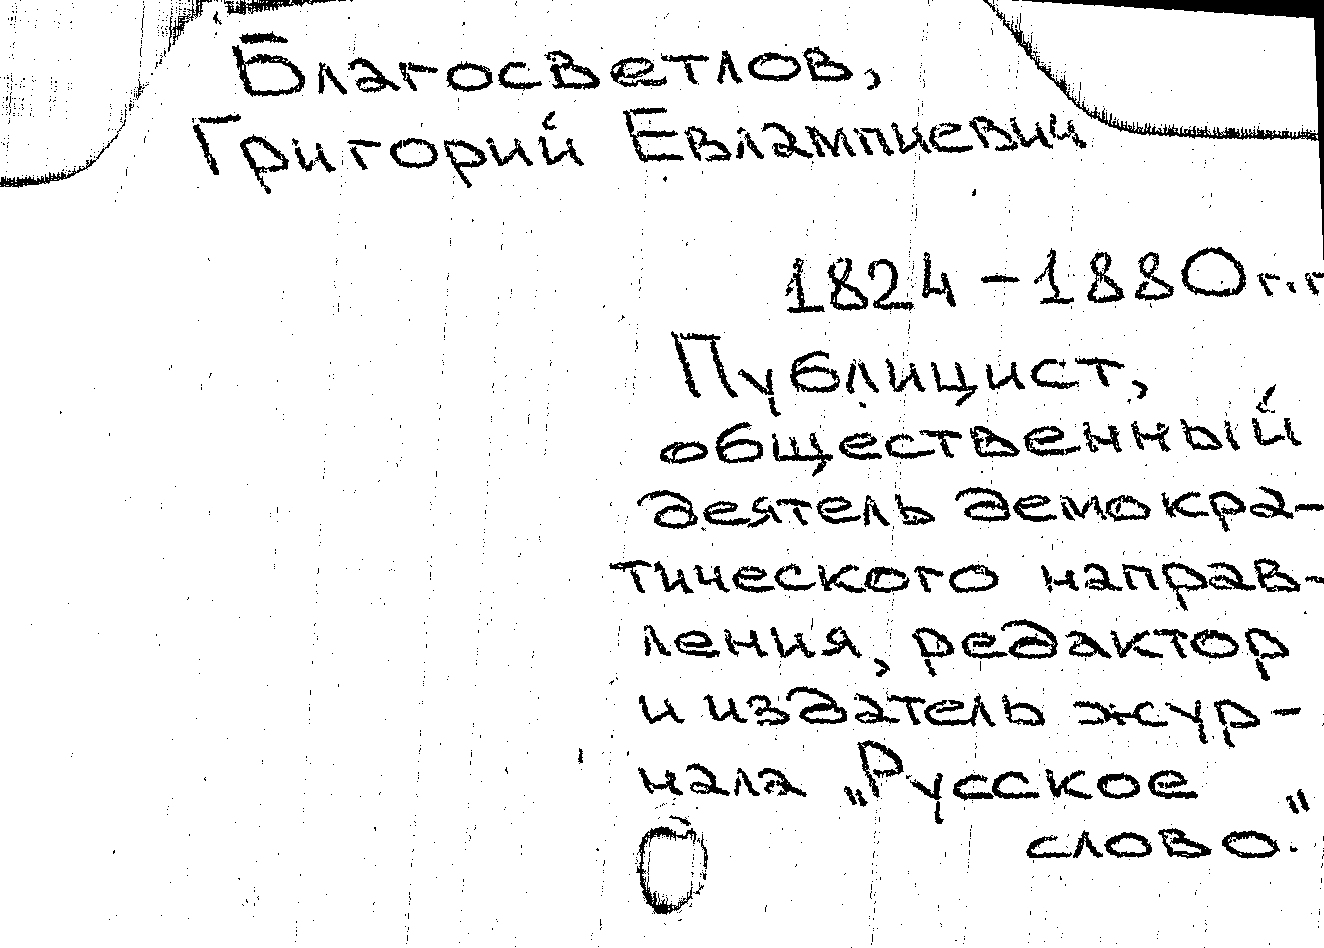 Благосветлов,
Григорий Евлампиевич
1824 – 1880 г.г
Публицист,
общественный
деятель демокра-
тического направ-
ления, редактор
и издатель жур-
нала „Русское
слово."